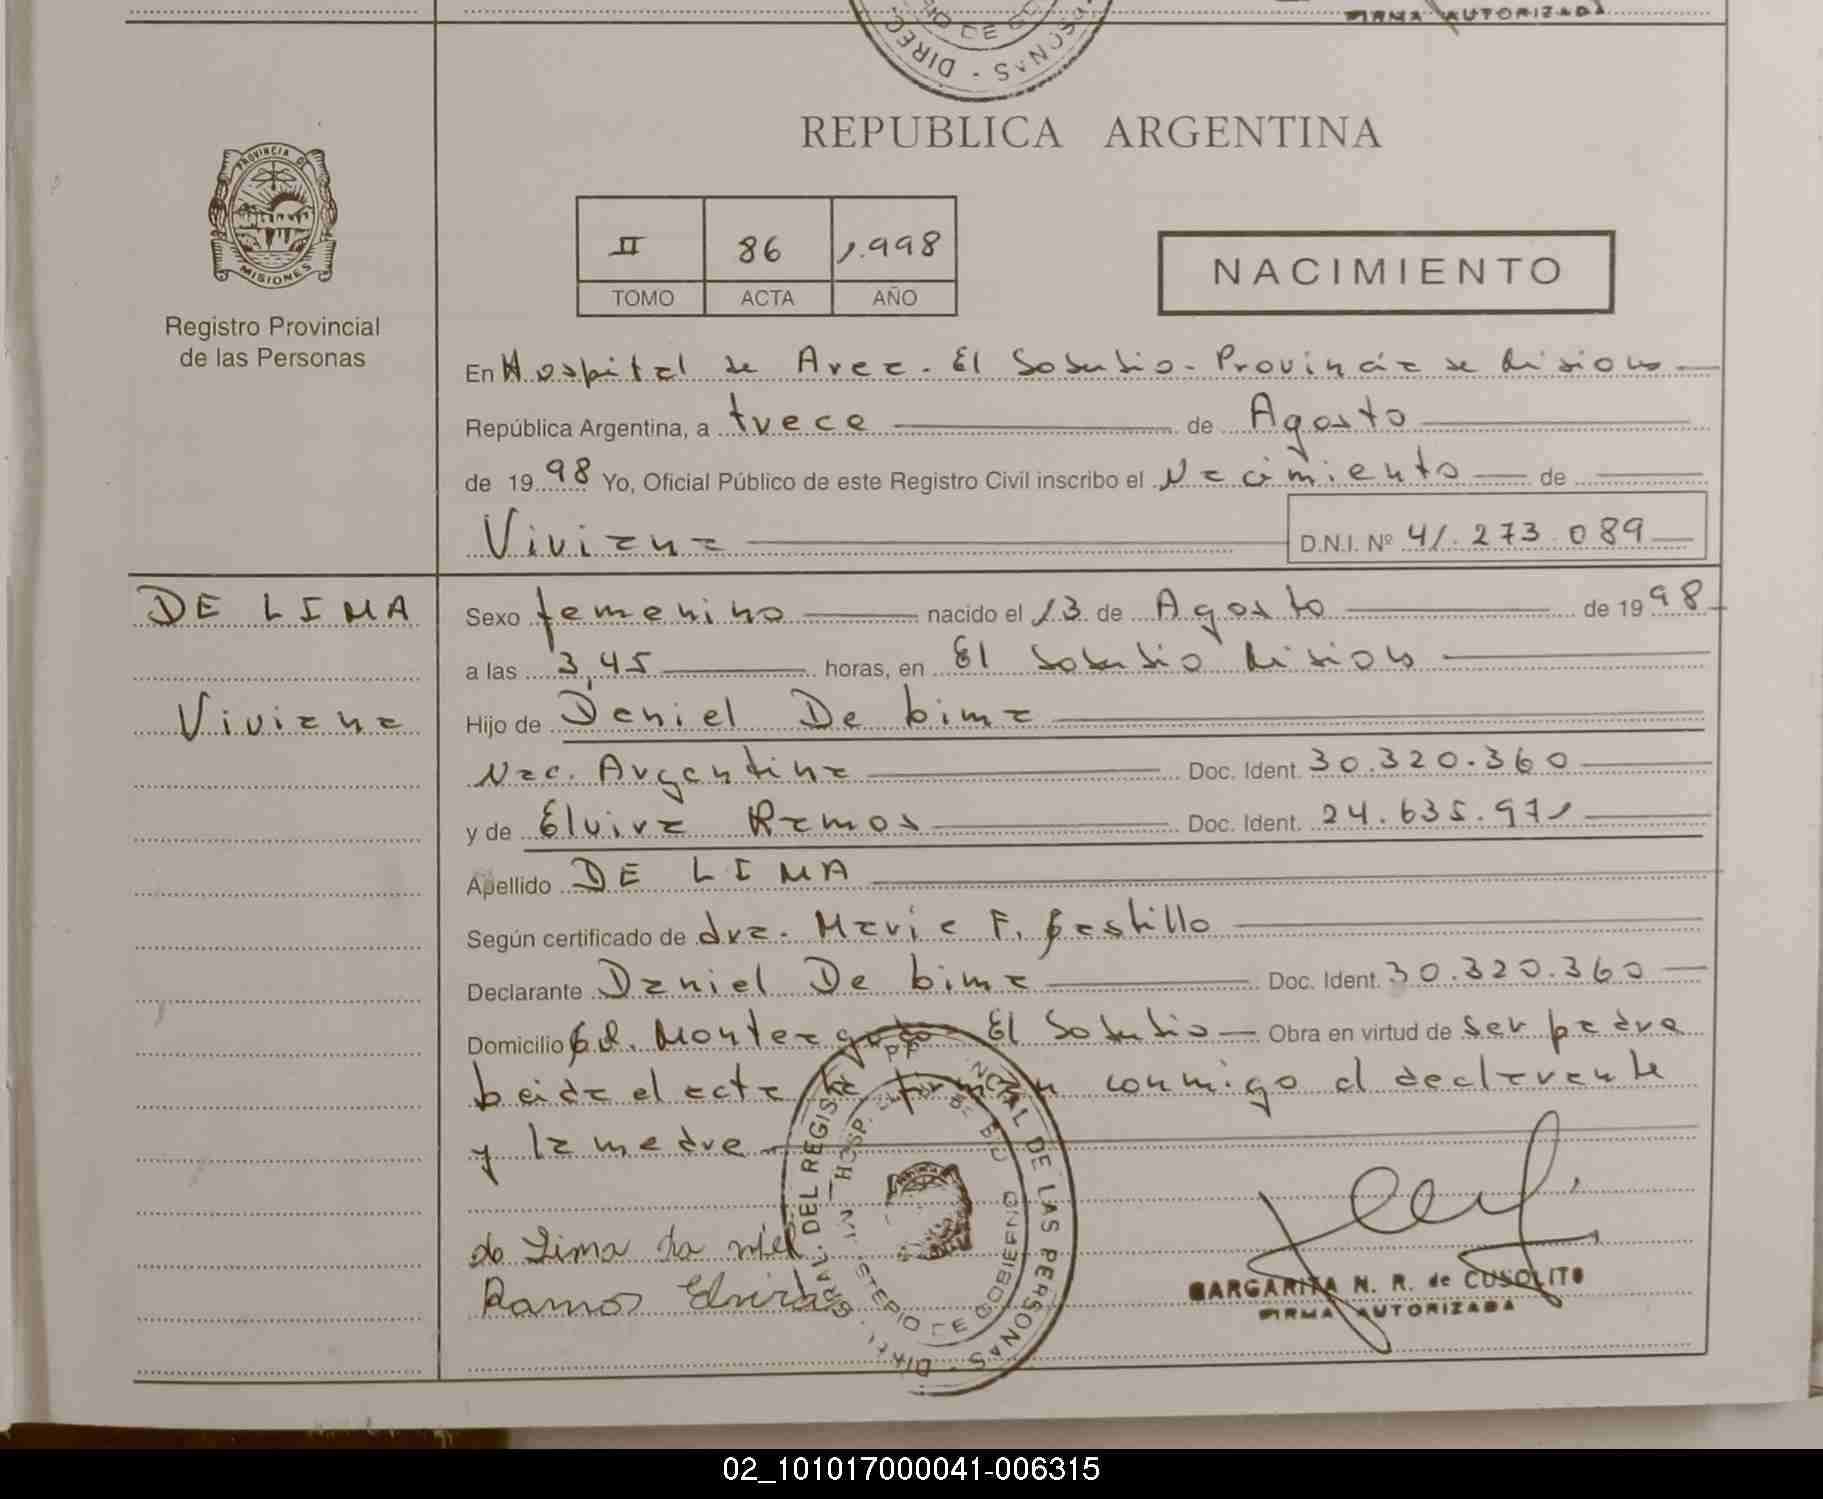 FIRMA AUTORIZADA
DIREC
PERSONAS
REPUBLICA ARGENTINA
PROVINCIA DE MISIONES
Registro Provincial
de las Personas
II 86 1.998
TOMO ACTA AÑO
NACIMIENTO
En Hospital de Area. El Soberbio - Provincia de Misiones
República Argentina, a trece de Agosto
de 19 98 Yo, Oficial Público de este Registro Civil inscribo el Nacimiento de
Viviana D.N.I. Nº 41.273.089
DE LIMA
Viviana
Sexo femenino nacido el 13 de Agosto de 19 98
a las 3,45 horas, en El Soberbio Misiones
Hijo de Daniel De Lima
Nac. Argentina Doc. Ident. 30.320.360
y de Elvira Ramos Doc. Ident. 24.635.971
Apellido DE LIMA
Según certificado de dra. Maria F. Castillo
Declarante Daniel De Lima Doc. Ident. 30.320.360
Domicilio Monteagudo El Soberbio Obra en virtud de ser padre
Leida el acta la firman conmigo el declarante
y la madre
de Lima Daniel
Ramos Elvira
DEL REGISTRO PROVINCIAL DE LAS PERSONAS
MINISTERIO DE GOBIERNO
MARGARITA N. R. de CUSOLITO
FIRMA AUTORIZADA
02_101017000041-006315